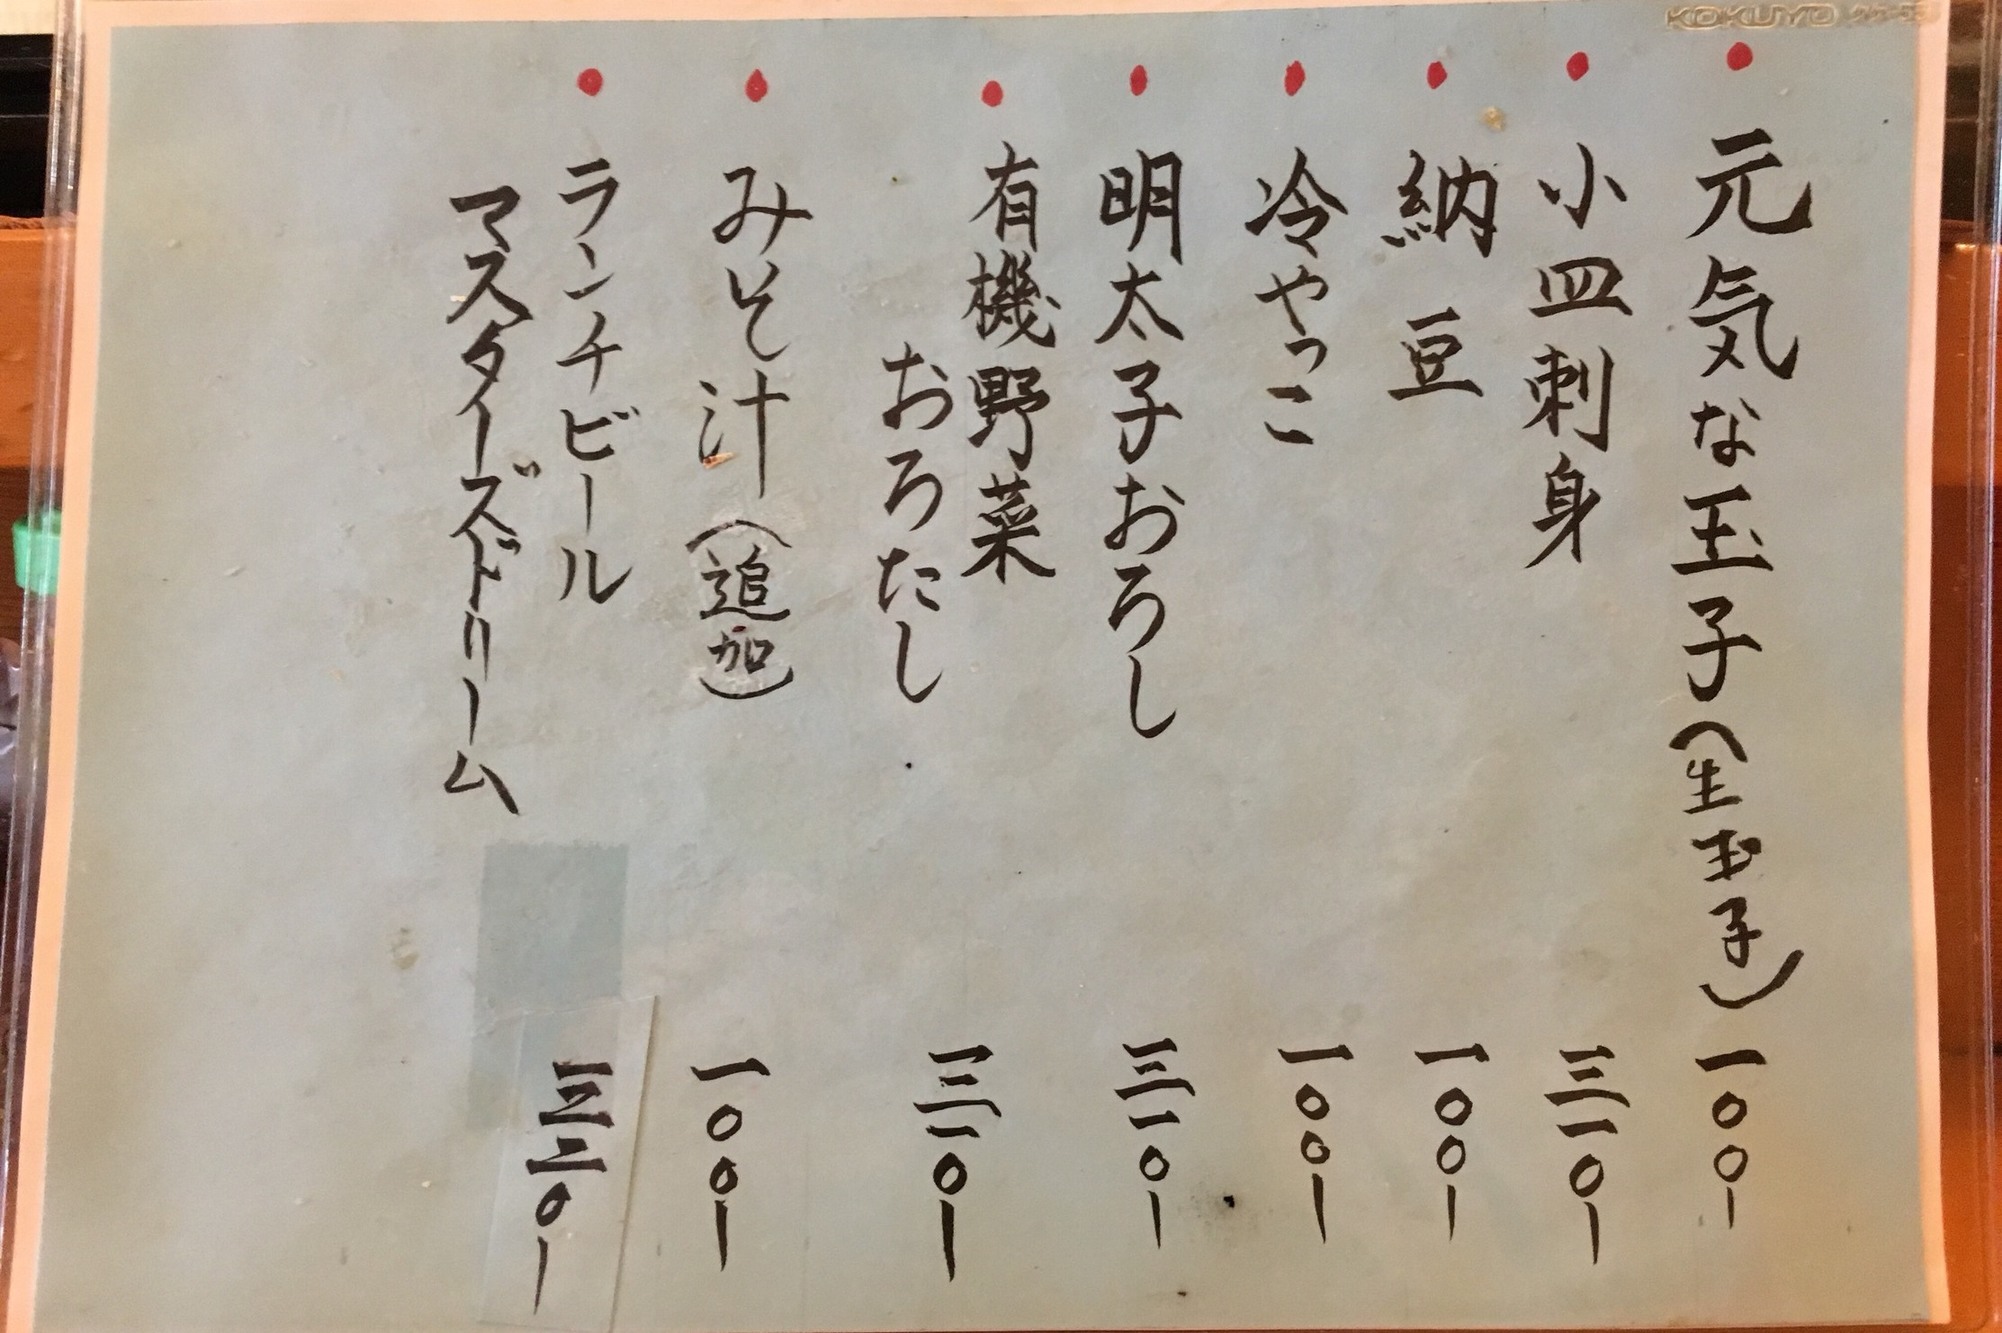 元気な玉子（生玉子）一〇〇ー
小皿刺身 三一〇ー
納豆 一〇〇ー
冷やっこ 一〇〇ー
明太子おろし 三一〇ー
有機野菜
おろたし 三一〇ー
みそ汁（追加） 一〇〇ー
ランチビール
マスターズドリーム 三二〇ー
KOKUYO